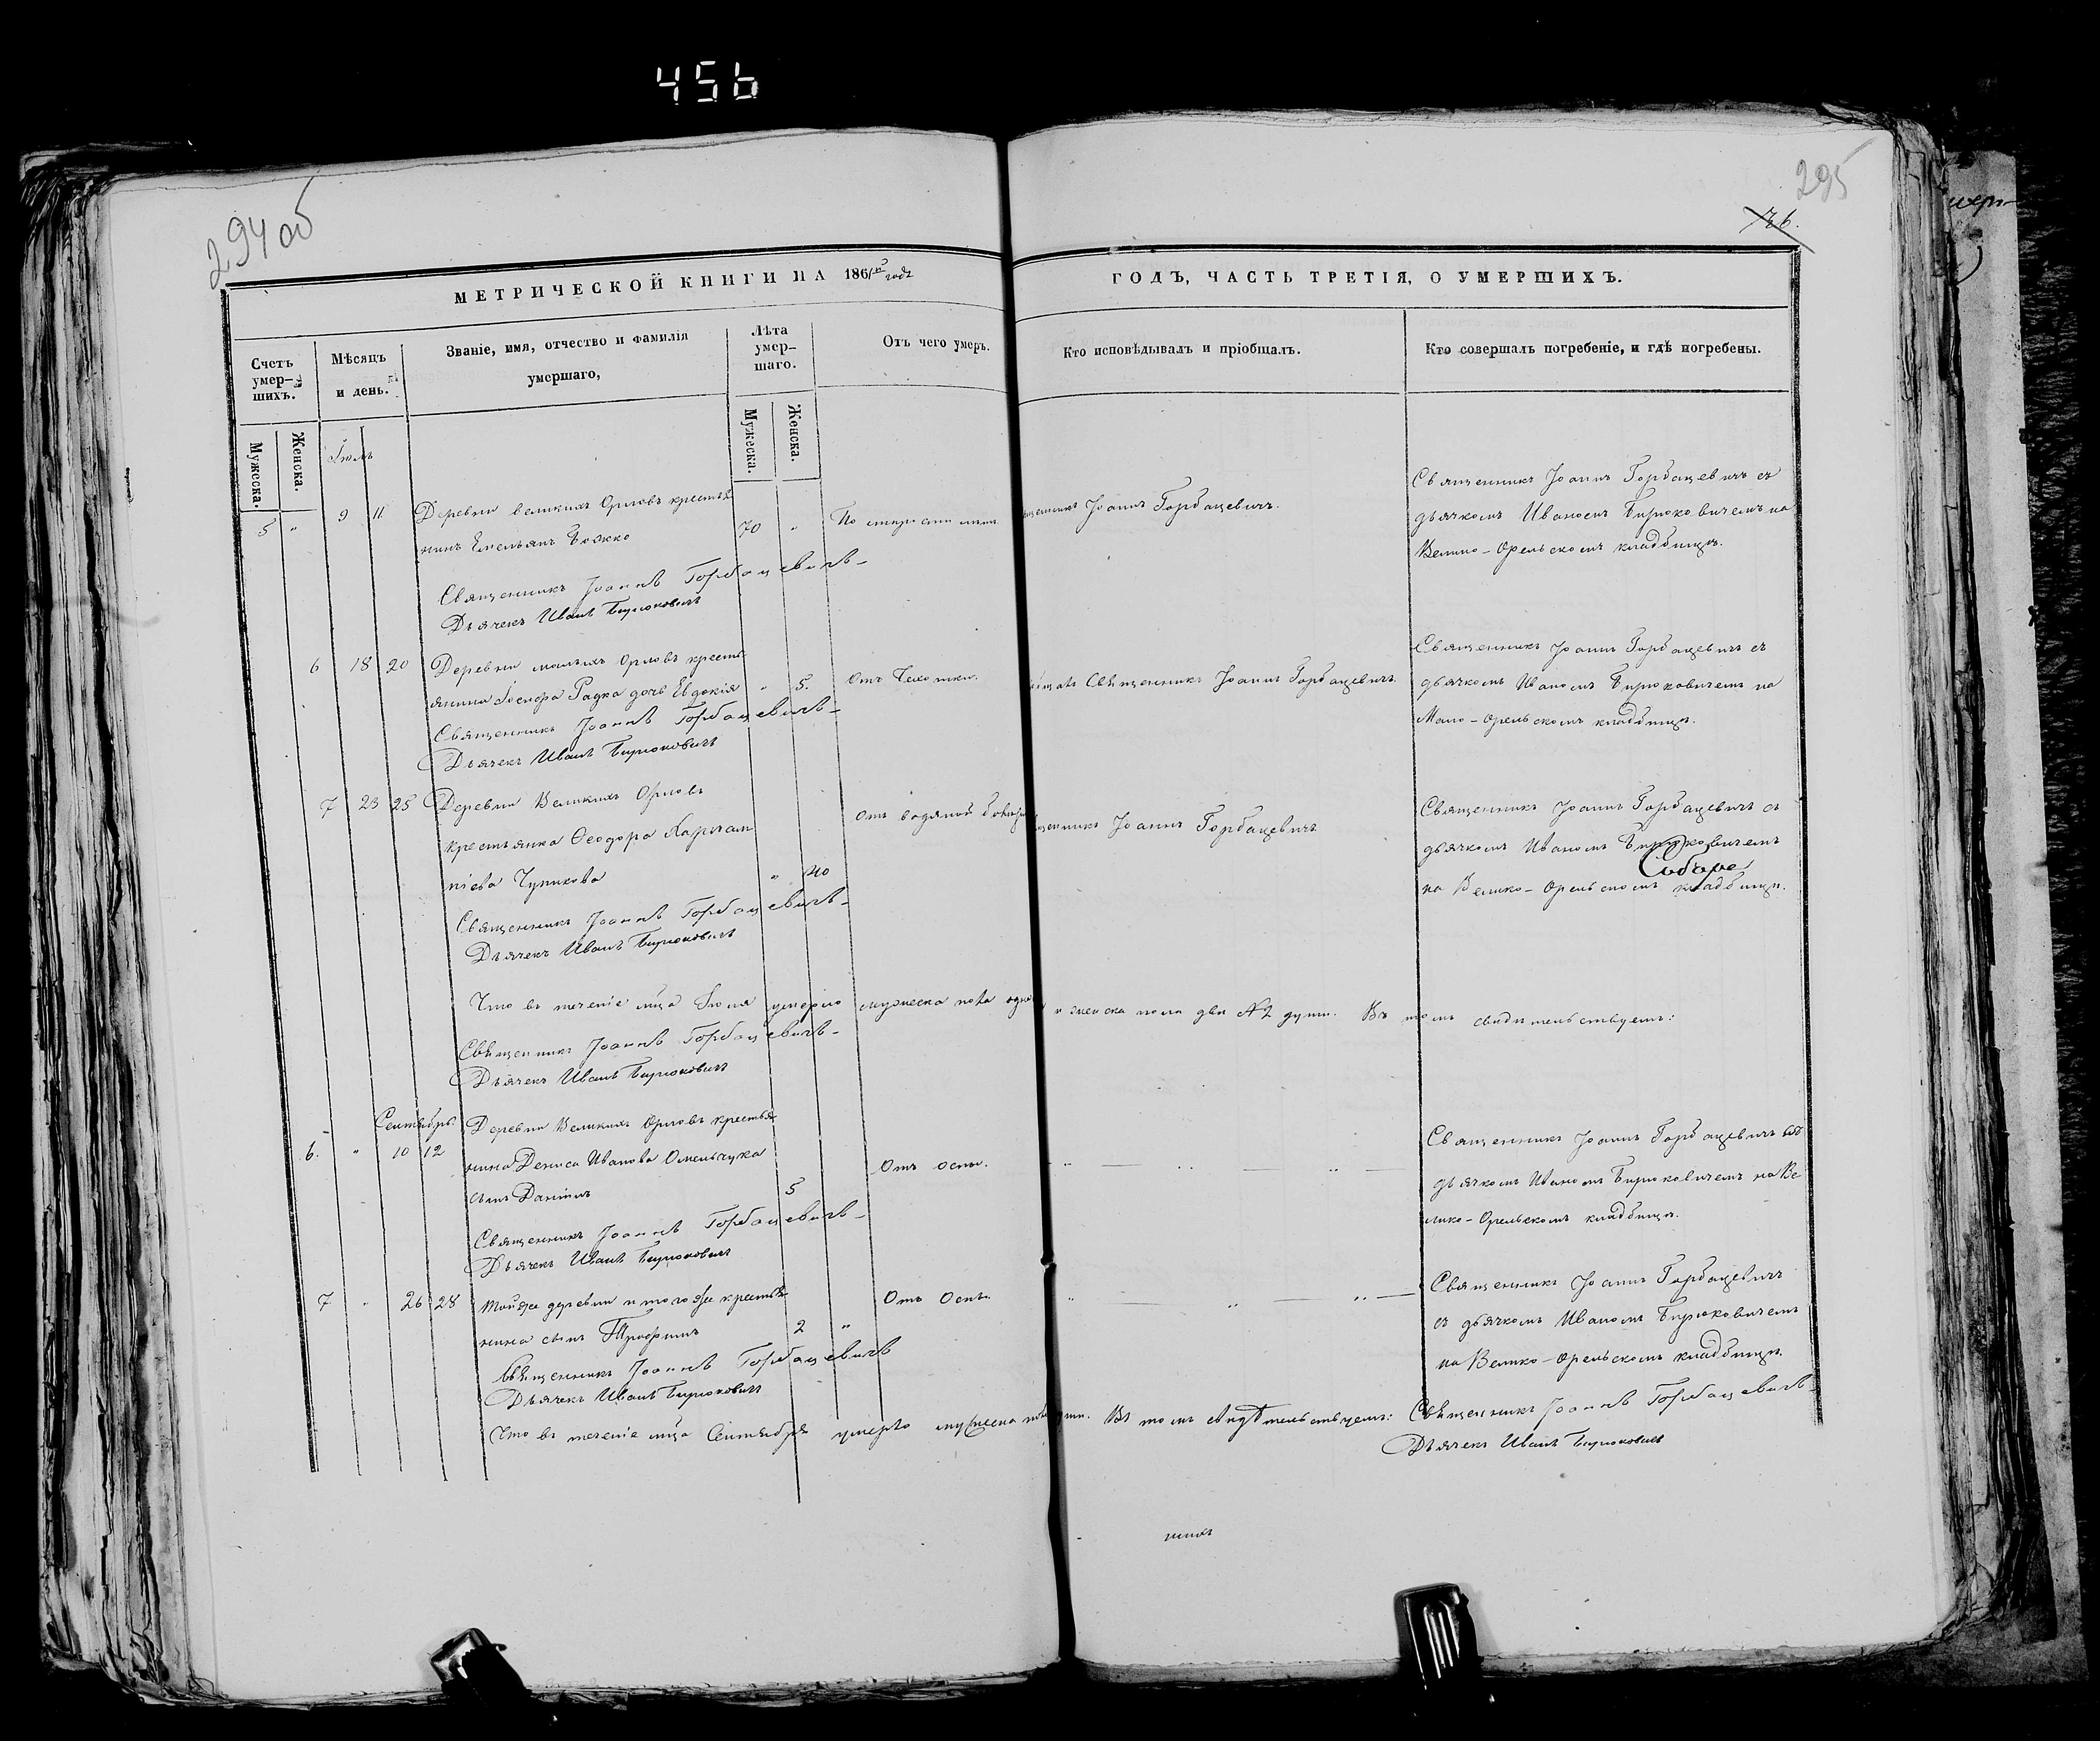 456
294 об
295
76.
МЕТРИЧЕСКОЙ КНИГИ НА 1861й годъ
ГОДЪ, ЧАСТЬ ТРЕТІЯ, О УМЕРШИХЪ.
Счетъ умер-шихъ.
Мѣсяцъ и день.
Званіе, имя, отчество и фамилія умершаго,
Лѣта умер-шаго.
Отъ чего умеръ.
Кто исповѣдывалъ и пріобщалъ.
Кто совершалъ погребеніе, и гдѣ погребены.
Мужеска.
Женска.
Мужеска.
Женска.
Іюль
5 " 9 11 Деревни великихъ Орловъ крестья
нинъ Емельянъ Божко 70 "
Священникъ Іоаннъ Горбацевичъ
Дьячекъ Иванъ Бирюковичъ
Іоаннъ Горбацевичъ.
Священникъ Іоаннъ Горбацевичъ съ
дьячкомъ Иваномъ Бирюковичемъ на
Велико-Орельскомъ кладбищѣ.
6 18 20 Деревни малыхъ Орловъ кресть
янина Іосифа Радка дочь Евдокія " 5.
Отъ Чехотки.
Священникъ Іоаннъ Горбацевичъ
Дьячекъ Иванъ Бирюковичъ
Священникъ Іоаннъ Горбацевичъ.
Священникъ Іоаннъ Горбацевичъ съ
дьячкомъ Иваномъ Бирюковичемъ на
Мало-Орельскомъ кладбищѣ.
7 23 25 Деревни Великихъ Орловъ
крестьянка Ѳеодора
" 40
отъ водяной
Священникъ Іоаннъ Горбацевичъ
Дьячекъ Иванъ Бирюковичъ
Іоаннъ Горбацевичъ
Священникъ Іоаннъ Горбацевичъ съ
дьячкомъ Иваномъ Бирюковичемъ
на Велико-Орельскомъ кладбищѣ.
Что въ теченіе мца Іюля умерло мужеска пола и женска пола двѣ душъ. Въ томъ свидѣтельствуемъ:
Священникъ Іоаннъ Горбацевичъ
Дьячекъ Иванъ Бирюковичъ
Сентябрь.
6. " 10 12 Деревни Великихъ Орловъ крестья
нина Дениса Иванова Омельчука
сынъ Даніилъ 5
Отъ оспы.
Священникъ Іоаннъ Горбацевичъ
Дьячекъ Иванъ Бирюковичъ
Священникъ Іоаннъ Горбацевичъ съ
дьячкомъ Иваномъ Бирюковичемъ на Ве
лико-Орельскомъ кладбищѣ.
7 " 26 28 Той же деревни и того же крестья
нина сынъ Трофимъ 2 "
Отъ Оспы.
Священникъ Іоаннъ Горбацевичъ
Дьячекъ Иванъ Бирюковичъ
Священникъ Іоаннъ Горбацевичъ
съ дьячкомъ Иваномъ Бирюковичемъ
на Велико-Орельскомъ кладбищѣ.
Что въ теченіе мца Сентября умерло мужеска Въ томъ свидѣтельствуемъ: Священникъ Іоаннъ Горбацевичъ
Дьячекъ Иванъ Бирюковичъ